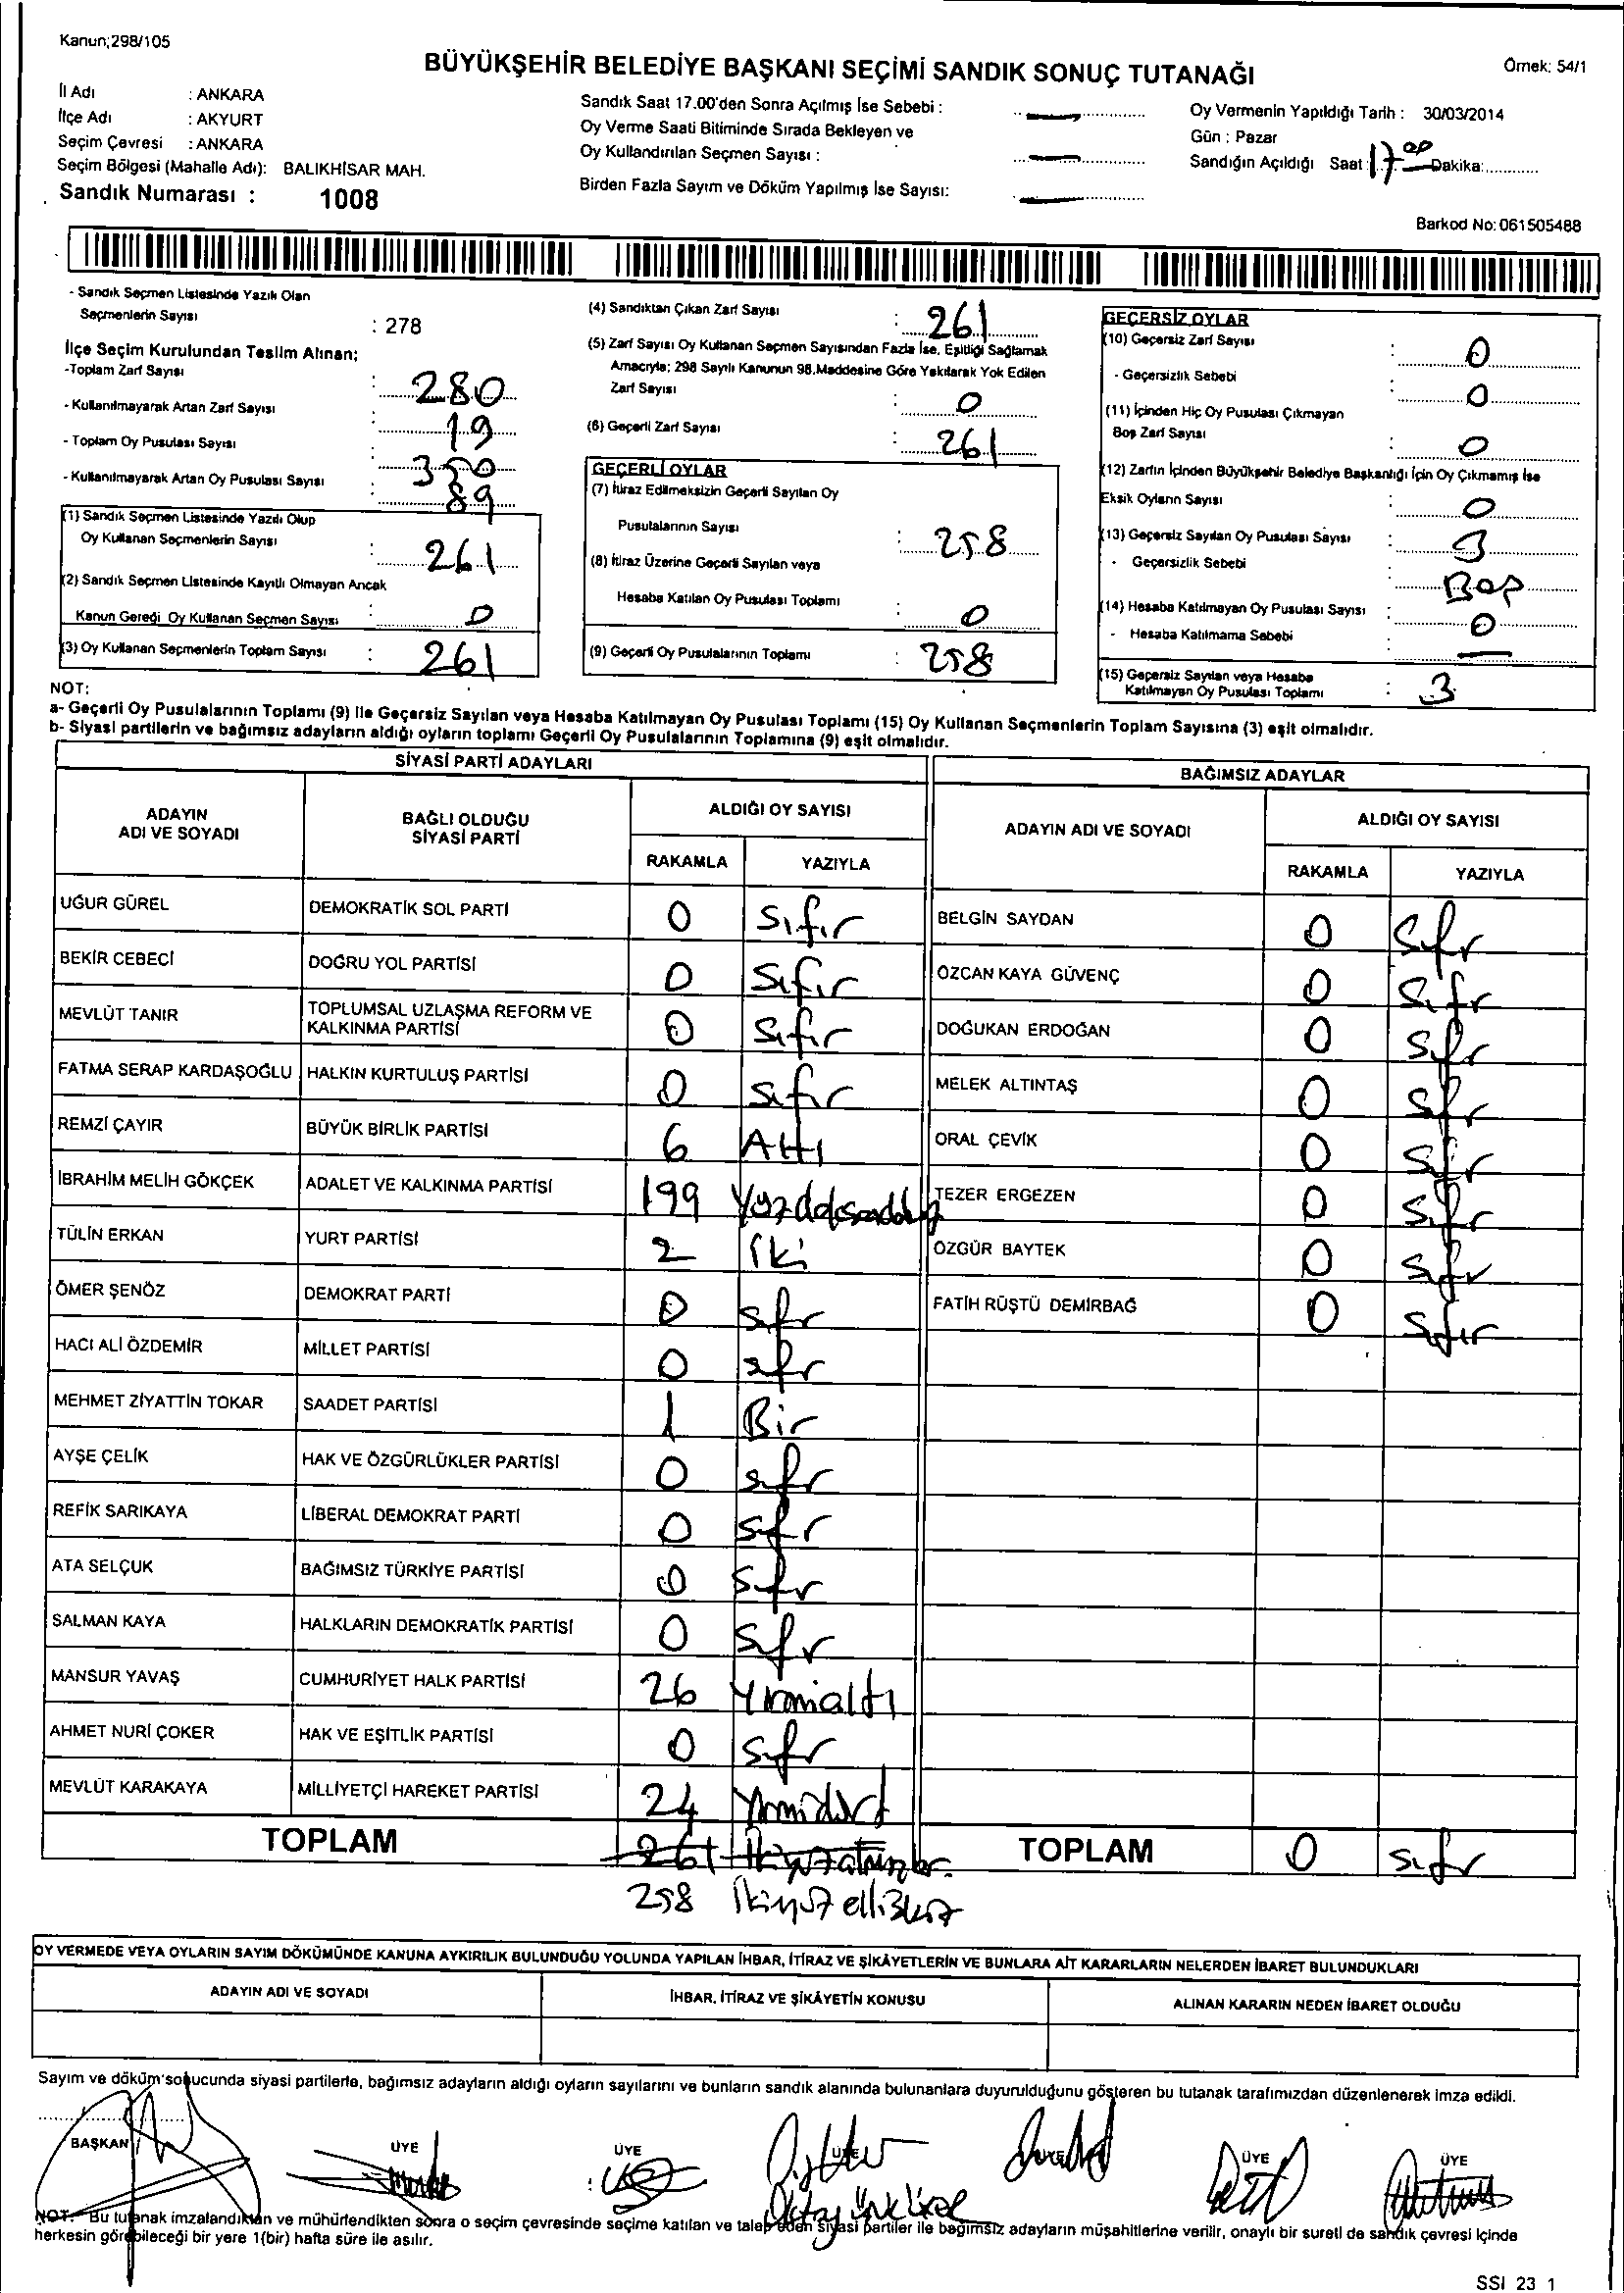 Kanun;298/105
BÜYÜKŞEHİR BELEDİYE BAŞKANI SEÇİMİ SANDIK SONUÇ TUTANAĞI
Örnek: 54/1
İl Adı : ANKARA
İlçe Adı : AKYURT
Seçim Çevresi : ANKARA
Seçim Bölgesi (Mahalle Adı): BALIKHİSAR MAH.
Sandık Numarası : 1008
Sandık Saat 17.00'den Sonra Açılmış İse Sebebi :
Oy Verme Saati Bitiminde Sırada Bekleyen ve
Oy Kullandırılan Seçmen Sayısı :
Birden Fazla Sayım ve Döküm Yapılmış İse Sayısı:
Oy Vermenin Yapıldığı Tarih : 30/03/2014
Gün : Pazar
Sandığın Açıldığı Saat 17 00 Dakika:
Barkod No: 061505488
- Sandık Seçmen Listesinde Yazılı Olan
Seçmenlerin Sayısı : 278
İlçe Seçim Kurulundan Teslim Alınan;
-Toplam Zarf Sayısı : 280
- Kullanılmayarak Artan Zarf Sayısı : 19
- Toplam Oy Pusulası Sayısı : 350
- Kullanılmayarak Artan Oy Pusulası Sayısı : 89
(1) Sandık Seçmen Listesinde Yazılı Olup
Oy Kullanan Seçmenlerin Sayısı : 261
(2) Sandık Seçmen Listesinde Kayıtlı Olmayan Ancak
Kanun Gereği Oy Kullanan Seçmen Sayısı : 0
(3) Oy Kullanan Seçmenlerin Toplam Sayısı : 261
(4) Sandıktan Çıkan Zarf Sayısı : 261
(5) Zarf Sayısı Oy Kullanan Seçmen Sayısından Fazla İse, Eşitliği Sağlamak
Amacıyla; 298 Sayılı Kanunun 98.Maddesine Göre Yakılarak Yok Edilen
Zarf Sayısı : 0
(6) Geçerli Zarf Sayısı : 261
GEÇERLİ OYLAR
(7) İtiraz Edilmeksizin Geçerli Sayılan Oy
Pusulalarının Sayısı : 258
(8) İtiraz Üzerine Geçerli Sayılan veya
Hesaba Katılan Oy Pusulası Toplamı : 0
(9) Geçerli Oy Pusulalarının Toplamı : 258
GEÇERSİZ OYLAR
(10) Geçersiz Zarf Sayısı : 0
- Geçersizlik Sebebi : 0
(11) İçinden Hiç Oy Pusulası Çıkmayan
Boş Zarf Sayısı : 0
(12) Zarfın İçinden Büyükşehir Belediye Başkanlığı İçin Oy Çıkmamış İse
Eksik Oyların Sayısı : 0
(13) Geçersiz Sayılan Oy Pusulası Sayısı : 3
- Geçersizlik Sebebi : Boş
(14) Hesaba Katılmayan Oy Pusulası Sayısı : 0
- Hesaba Katılmama Sebebi :
(15) Geçersiz Sayılan veya Hesaba
Katılmayan Oy Pusulası Toplamı : 3
NOT:
a- Geçerli Oy Pusulalarının Toplamı (9) ile Geçersiz Sayılan veya Hesaba Katılmayan Oy Pusulası Toplamı (15) Oy Kullanan Seçmenlerin Toplam Sayısına (3) eşit olmalıdır.
b- Siyasi partilerin ve bağımsız adayların aldığı oyların toplamı Geçerli Oy Pusulalarının Toplamına (9) eşit olmalıdır.
SİYASİ PARTİ ADAYLARI
ADAYIN ADI VE SOYADI
BAĞLI OLDUĞU SİYASİ PARTİ
ALDIĞI OY SAYISI
RAKAMLA YAZIYLA
UĞUR GÜREL DEMOKRATİK SOL PARTİ 0 Sıfır
BEKİR CEBECİ DOĞRU YOL PARTİSİ 0 Sıfır
MEVLÜT TANIR TOPLUMSAL UZLAŞMA REFORM VE KALKINMA PARTİSİ 0 Sıfır
FATMA SERAP KARDAŞOĞLU HALKIN KURTULUŞ PARTİSİ 0 Sıfır
REMZİ ÇAYIR BÜYÜK BİRLİK PARTİSİ 6 Altı
İBRAHİM MELİH GÖKÇEK ADALET VE KALKINMA PARTİSİ 199
TÜLİN ERKAN YURT PARTİSİ 2 İki
ÖMER ŞENÖZ DEMOKRAT PARTİ 0 Sıfr
HACI ALİ ÖZDEMİR MİLLET PARTİSİ 0 Sıfr
MEHMET ZİYATTİN TOKAR SAADET PARTİSİ 1 Bir
AYŞE ÇELİK HAK VE ÖZGÜRLÜKLER PARTİSİ 0 Sıfr
REFİK SARIKAYA LİBERAL DEMOKRAT PARTİ 0 Sıfr
ATA SELÇUK BAĞIMSIZ TÜRKİYE PARTİSİ 0 Sıfr
SALMAN KAYA HALKLARIN DEMOKRATİK PARTİSİ 0 Sıfr
MANSUR YAVAŞ CUMHURİYET HALK PARTİSİ 26 Yirmialtı
AHMET NURİ ÇOKER HAK VE EŞİTLİK PARTİSİ 0 Sıfr
MEVLÜT KARAKAYA MİLLİYETÇİ HAREKET PARTİSİ 24 Yirmidört
TOPLAM 261
258 İkiyüzellisekiz
BAĞIMSIZ ADAYLAR
ADAYIN ADI VE SOYADI
ALDIĞI OY SAYISI
RAKAMLA YAZIYLA
BELGİN SAYDAN 0 Sıfr
ÖZCAN KAYA GÜVENÇ 0 Sıfr
DOĞUKAN ERDOĞAN 0 Sıfr
MELEK ALTINTAŞ 0 Sıfr
ORAL ÇEVİK 0 Sıfr
TEZER ERGEZEN 0 Sıfr
ÖZGÜR BAYTEK 0 Sıfr
FATİH RÜŞTÜ DEMİRBAĞ 0 Sıfır
TOPLAM 0 Sıfr
OY VERMEDE VEYA OYLARIN SAYIM DÖKÜMÜNDE KANUNA AYKIRILIK BULUNDUĞU YOLUNDA YAPILAN İHBAR, İTİRAZ VE ŞİKÂYETLERİN VE BUNLARA AİT KARARLARIN NELERDEN İBARET BULUNDUKLARI
ADAYIN ADI VE SOYADI İHBAR, İTİRAZ VE ŞİKÂYETİN KONUSU ALINAN KARARIN NEDEN İBARET OLDUĞU
Sayım ve döküm sonucunda siyasi partilerle, bağımsız adayların aldığı oyların sayılarını ve bunların sandık alanında bulunanlara duyurulduğunu gösteren bu tutanak tarafımızdan düzenlenerek imza edildi.
BAŞKAN ÜYE ÜYE ÜYE ÜYE ÜYE ÜYE
NOT: Bu tutanak imzalandıktan ve mühürlendikten sonra o seçim çevresinde seçime katılan ve talep eden siyasi partiler ile bağımsız adayların müşahitlerine verilir, onaylı bir sureti de sandık çevresi içinde
herkesin görebileceği bir yere 1(bir) hafta süre ile asılır.
SSI 23 1